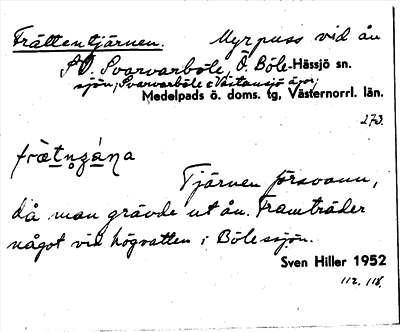 Frättentjärnen. Myrpuss vid ån
SV. Svarvarböle, Ö. Böle-Hässjö sn.
sjön, Svarvarböle o Västansjö ägor,
Medelpads ö. doms. tg, Västernorrl. län.
273.
Tjärnen försvann,
då man grävde ut ån. Framträder
något vid högvatten i Bölessjön.
Sven Hiller 1952
112. 118.